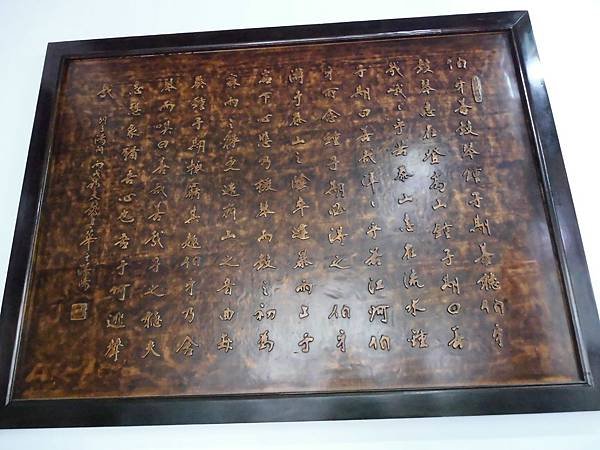 伯牙善鼓琴鍾子期善聽伯牙
鼓琴志在登高山鍾子期曰善
哉峨〻兮若泰山志在流水鍾
子期曰善哉洋〻兮若江河伯
牙所念鍾子期必得之伯牙
游于泰山之陰卒逢暴雨止于
岩下心悲乃援琴而鼓之初為
霖雨之操更造崩山之音曲每
奏鍾子期輒窮其趣伯牙乃舍
琴而嘆曰善哉善哉子之聽夫
志想象猶吾心也吾于何逃聲
哉 列子湯問 丙戌秋